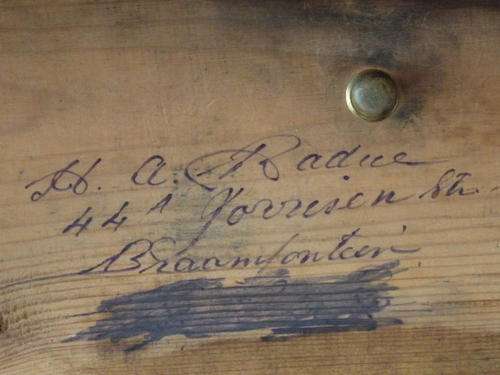 H. A. Radue
44A Jorrisen Str.
Braamfontein